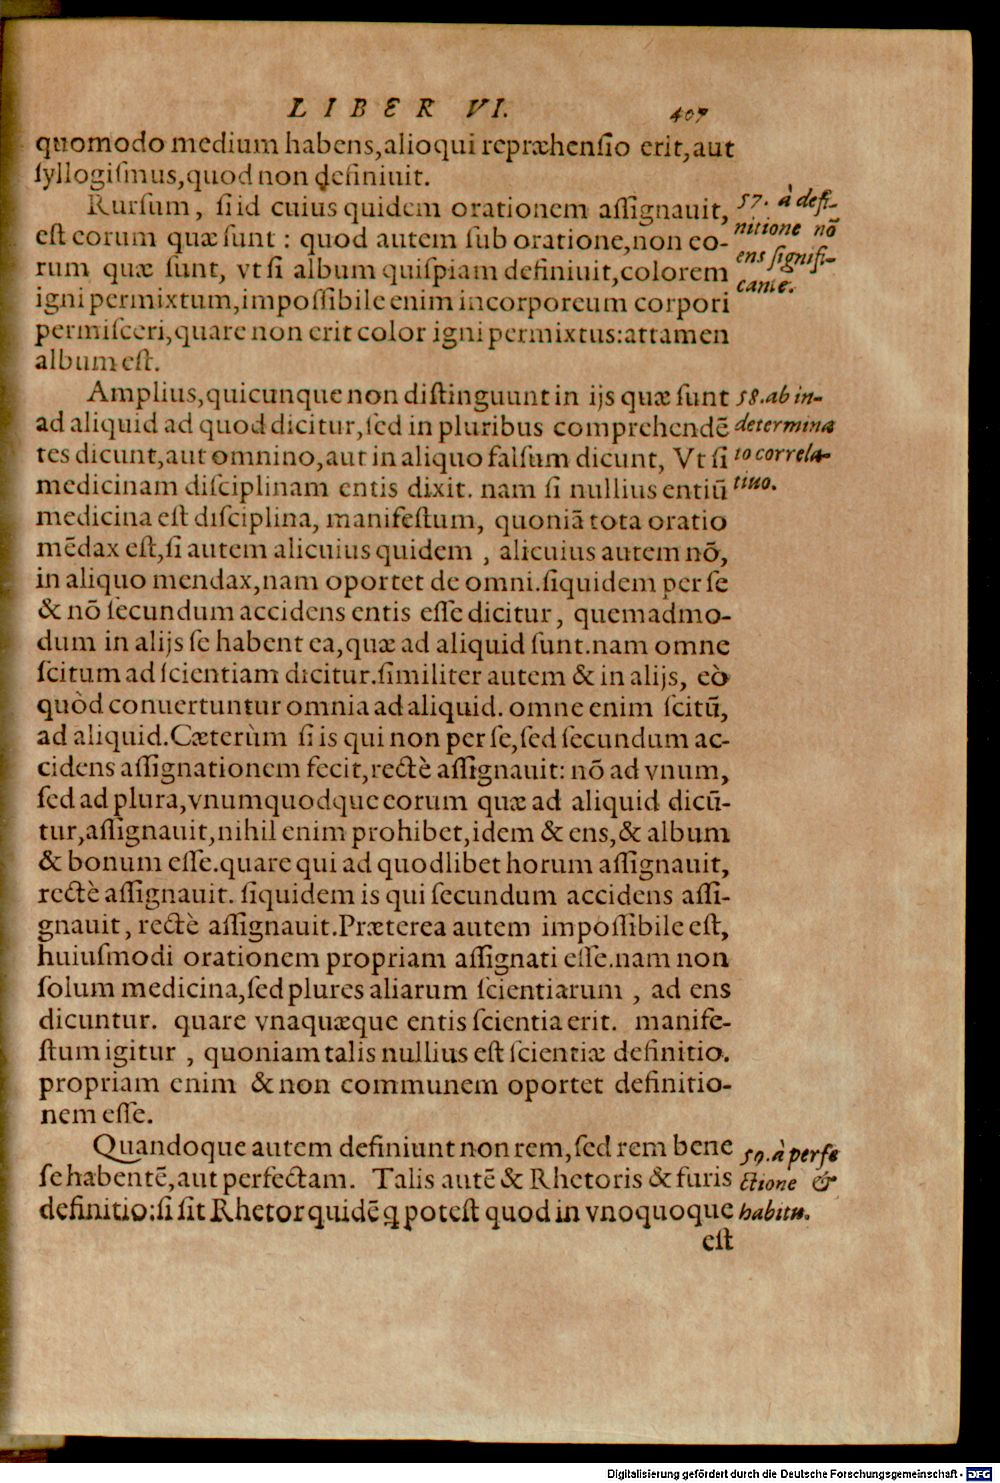 LIBER VI. 407
quomodo medium habens,alioqui repræhensio erit,aut
syllogiſmus,quod non definiuit.
Rurſum, ſi id cuius quidem orationem aſſignauit,
eſt eorum quæ ſunt : quod autem ſub oratione,non eo-
rum quæ ſunt, vt ſi album quiſpiam definiuit,colorem
igni permixtum,impoſſibile enim incorporeum corpori
permiſceri,quare non erit color igni permixtus:attamen
album eſt.
57. à defi-
nitione nō
ens ſignifi-
cante.
Amplius,quicunque non diſtinguunt in ijs quæ ſunt
ad aliquid ad quod dicitur,ſed in pluribus comprehendē
tes dicunt,aut omnino,aut in aliquo falſum dicunt, Vt ſi
medicinam diſciplinam entis dixit. nam ſi nullius entiū
medicina eſt diſciplina, manifeſtum, quoniā tota oratio
mēdax eſt,ſi autem alicuius quidem , alicuius autem nō,
in aliquo mendax,nam oportet de omni.ſiquidem per ſe
& nō ſecundum accidens entis eſſe dicitur, quemadmo-
dum in alijs ſe habent ea,quæ ad aliquid ſunt.nam omne
ſcitum ad ſcientiam dicitur.ſimiliter autem & in alijs, eò
quòd conuertuntur omnia ad aliquid. omne enim ſcitū,
ad aliquid.Cæterùm ſi is qui non per ſe,ſed ſecundum ac-
cidens aſſignationem fecit,rectè aſſignauit: nō ad vnum,
ſed ad plura,vnumquodque eorum quæ ad aliquid dicū-
tur,aſſignauit,nihil enim prohibet,idem & ens,& album
& bonum eſſe.quare qui ad quodlibet horum aſſignauit,
rectè aſſignauit. ſiquidem is qui ſecundum accidens aſſi-
gnauit, rectè aſſignauit.Præterea autem impoſſibile eſt,
huiuſmodi orationem propriam aſſignati eſſe.nam non
ſolum medicina,ſed plures aliarum ſcientiarum , ad ens
dicuntur. quare vnaquæque entis ſcientia erit. manife-
ſtum igitur , quoniam talis nullius eſt ſcientiæ definitio.
propriam enim & non communem oportet definitio-
nem eſſe.
58. ab in-
determina
to correla-
tiuo.
Quandoque autem definiunt non rem,ſed rem bene
ſe habentē,aut perfectam. Talis autē & Rhetoris & furis
definitio:ſi ſit Rhetor quidē q poteſt quod in vnoquoque
59. à perfe
ctione &
habitu.
eſt
Digitalisierung gefördert durch die Deutsche Forschungsgemeinschaft - DFG